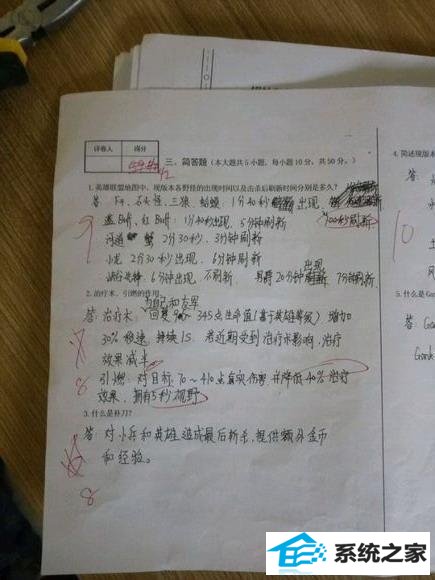 评卷人 得分
三、简答题（本大题共5小题，每小题10分，共50分。）
1.英雄联盟地图中，现版本各野怪的出现时间以及击杀后刷新时间分别是多久？
答：F4、石头怪、三狼、蛤蟆：1分40秒 出现，
100秒刷新
蓝Buff、红Buff：1分40秒出现，5分钟刷新
河道 蟹 2分30秒，3分钟刷新
小龙 2分30秒出现，6分钟刷新
峡谷先锋：6分钟出现，不刷新 男爵20分钟 出现 7分钟刷新
2.治疗术、引燃的作用
与自己和友军
答：治疗术：回复 90~345点生命值（基于英雄等级）增加
30%移速，持续1S. 若近期受到治疗术影响，治疗
效果减半
引燃：对目标 70～410点真实伤害 并降低40%治疗
效果，拥有5秒视野
3.什么是补刀？
答：对小兵和英雄 造成最后斩杀，提供额外金币
和经验。
9
8
8
4.简述现版
答：
10
5.什么是G
答：Gan
Gank
系统之家